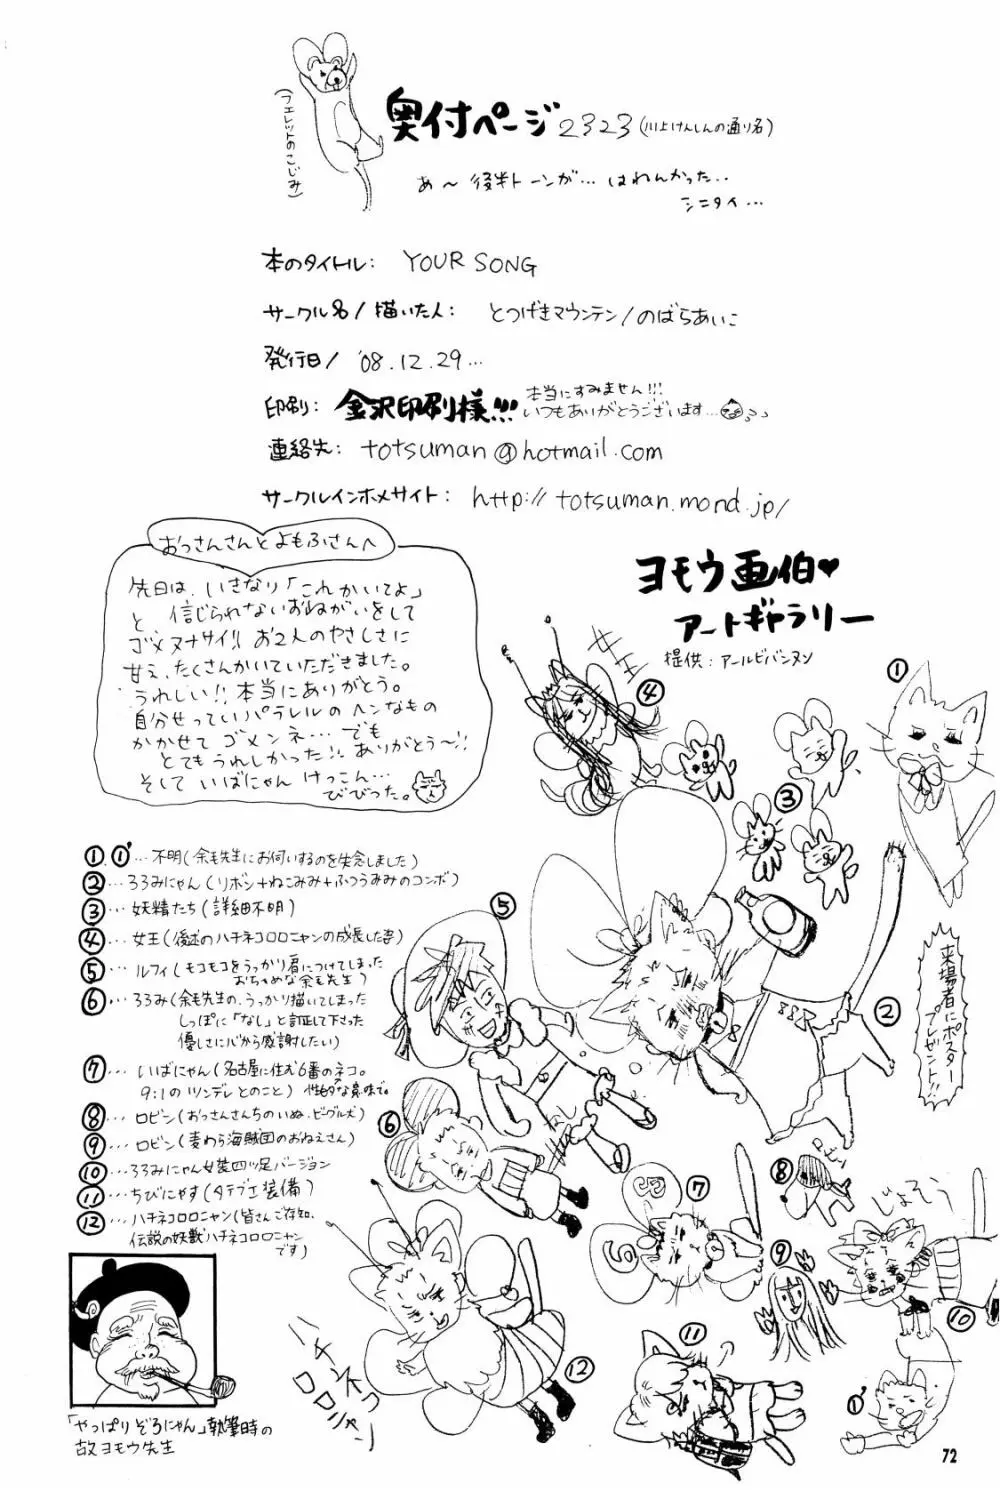 (フェレットのこじみ)
奥付ページ 2323(川上けんしんの通り名)
あ～ 後半トーンが… はれんかった‥
シニタイ…
本のタイトル: YOUR SONG
サークル名/描いた人: とつげきマウンテン/のばらあいこ
発行日/ '08.12.29…
印刷: 金沢印刷様!!! 本当にすみません!!!
いつもありがとうございます…
連絡先: totsuman@hotmail.com
サークルインホメサイト: http://totsuman.mond.jp/
おっさんさんとよもふさんへ
先日は、いきなり「これかいてよ」
と 信じられないおねがいをして
ゴメヌナサイ!! お2人のやさしさに
甘え、たくさんかいていただきました。
うれしい!! 本当にありがとう。
自分せっていパラレルのヘンなもの
かかせて ゴメンネ… でも
とてもうれしかった!! ありがとう～!!
そして いばにゃん けっこん…
びびった。
ヨモウ画伯♥
アートギャラリー
提供: アールビバンヌン
女王
④
①
③
⑤
②
来場者にポスター
プレゼント!!
①.①'…不明(余毛先生にお伺いするのを失念しました)
②…ろろみにゃん(リボン+ねこみみ+ふつうみみのコンボ)
③…妖精たち(詳細不明)
④…女王(後述のハチネコロロニャンの成長した姿)
⑤…ルフィ(モコモコをうっかり君につけてしまった
おちゃめな余毛先生)
⑥…ろろみ(余毛先生の、うっかり描いてしまった
しっぽに「なし」と訂正して下さった
優しさに心から感謝したい)
⑦…いばにゃん(名古屋に住む6番のネコ。
9:1のツンデレとのこと)性的な意味で。
⑧…ロビン(おっさんさんちのいぬ・ビグル犬)
⑨…ロビン(麦わら海賊団のおねえさん)
⑩…ろろみにゃん女装四ツ足バージョン
⑪…ちびにゃす(タテブエ装備)
⑫…ハチネコロロニャン(皆さんご存知、
伝説の妖獣ハチネコロロニャン
です)
なし
⑥
⑦
⑧
じょそう
⑨
⑩
⑪
⑫
ハチネコ
ロロニャン
①'
「やっぱりぞろにゃん」執筆時の
故ヨモウ先生
72